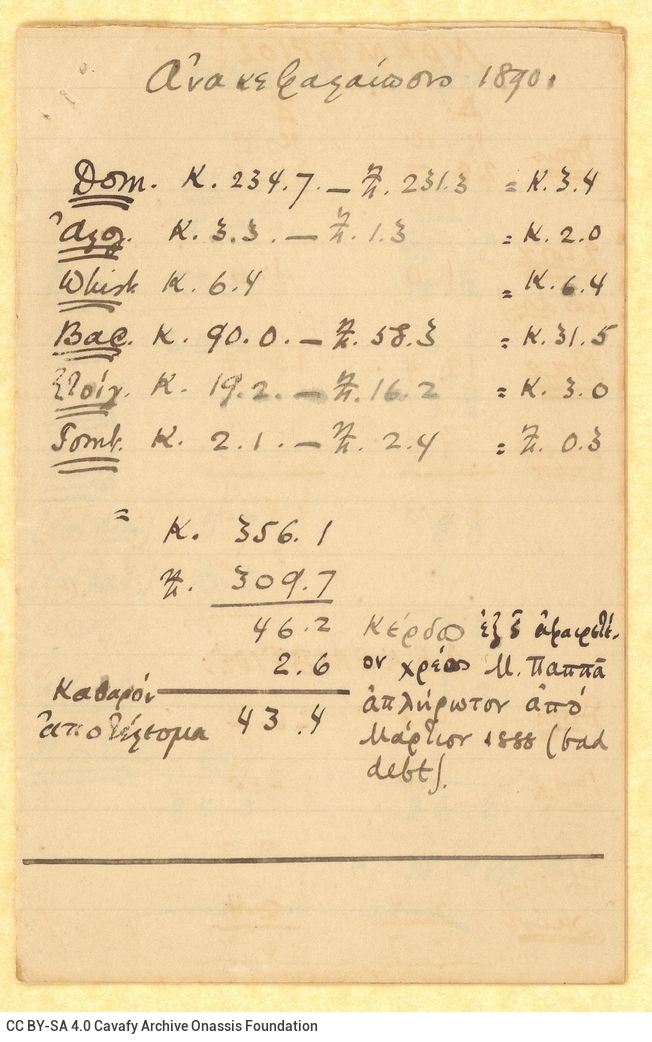 Ἀνακεφαλαίωσις 1890.
Dom. Κ. 234.7. — Ζ. 231.3 = Κ. 3.4
Κ. 3.3. — Ζ. 1.3 = Κ. 2.0
Whist Κ. 6.4 = Κ. 6.4
Bac. Κ. 90.0. — Ζ. 58.3 = Κ. 31.5
Στοίχ. Κ. 19.2. — Ζ. 16.2 = Κ. 3.0
Tomb. Κ. 2.1. — Ζ. 2.4 = Ζ. 0.3
= Κ. 356.1
Ζ. 309.7
46.2 Κέρδος ἐξ οὗ ἀφαιρετέ-
2.6 ον χρέος Μ. Παππᾶ
Καθαρὸν ἀπλήρωτον ἀπὸ
ἀποτέλεσμα 43.4 Μάρτιον 1888 (bad
debt).
CC BY-SA 4.0 Cavafy Archive Onassis Foundation